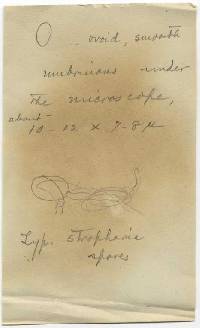 ovoid, smooth
umbrinous under
the microscope,
about
10-12 x 7-8 µ
Typ. Stropharia
spores